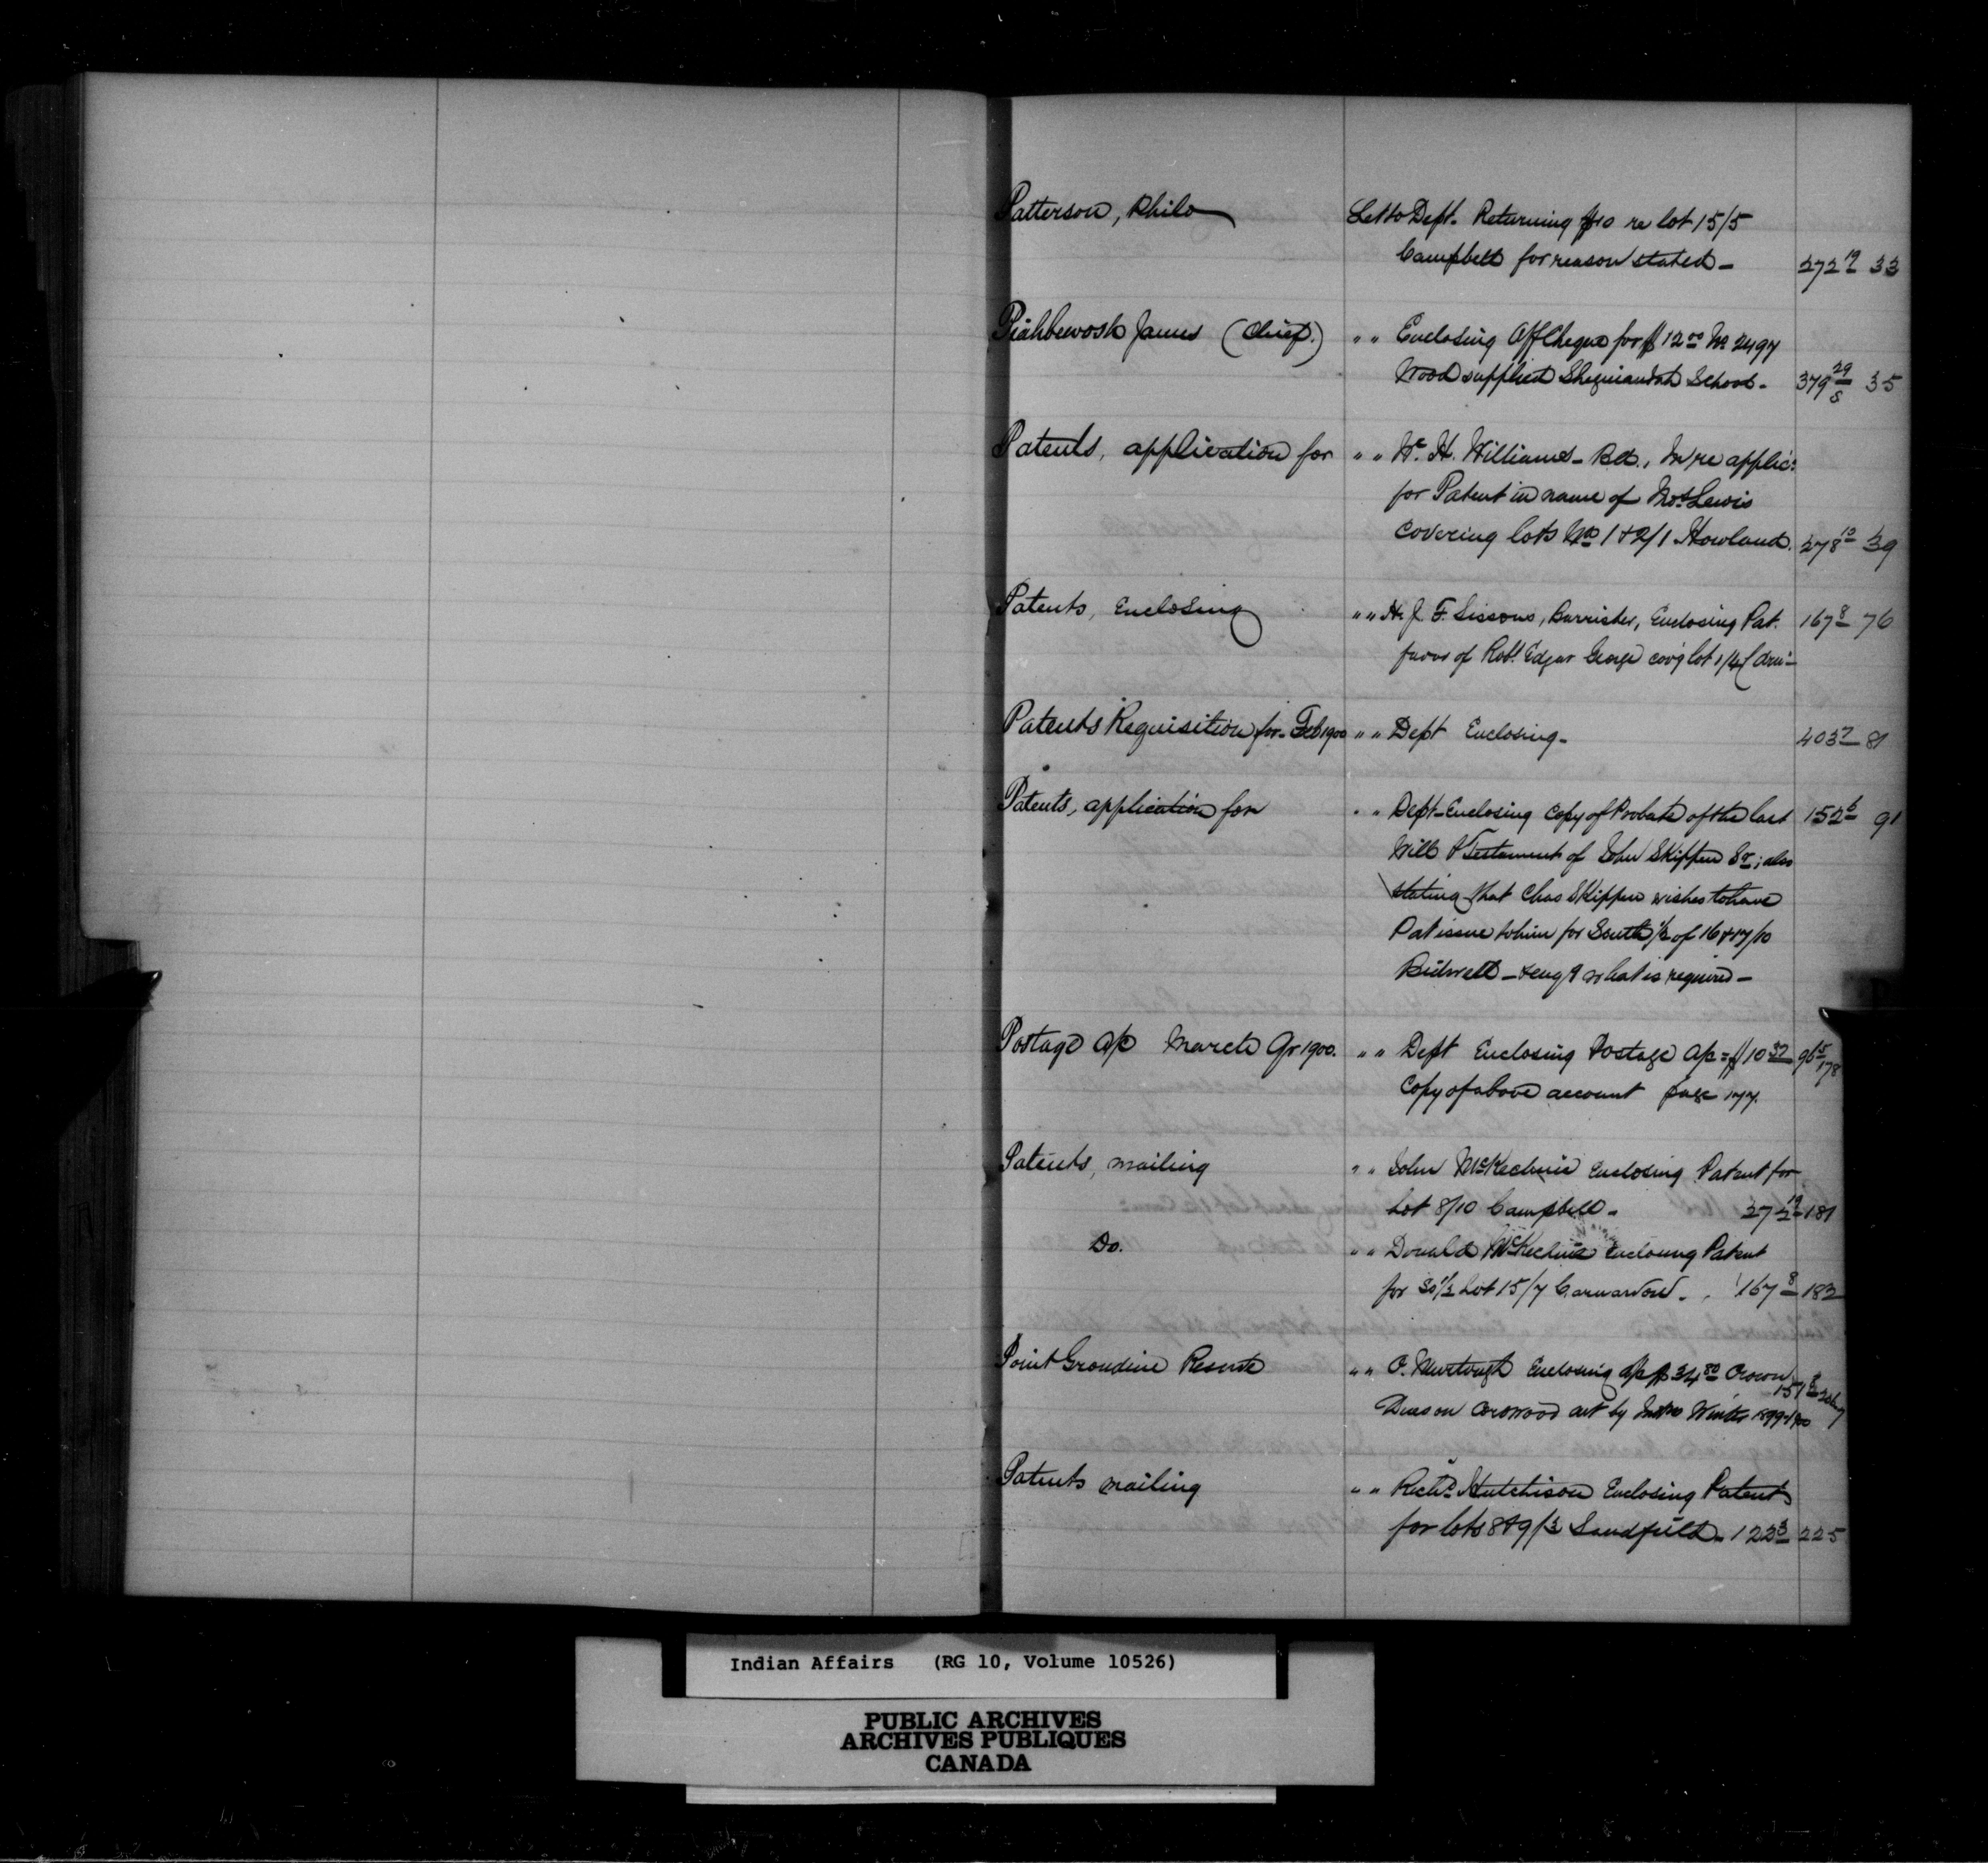 Patterson, Philo Let to Dept. Returning $10 re lot 15/5
Campbell for reason stated - 272 19 33
Piahbewosh James (Chief.) " " Enclosing Off Cheque for $12 00 No 2497
Wood supplied Sheguiandah School - 379 29/8 35
Patents, application for " " Wm H. Williams - Bd., In re applic:
for Patent in name of Lewis
covering lots Nos 1 & 2/1 Howland. 278 13 39
Patents, Enclosing " " H. J. F. Sissons, Barrister, Enclosing Pat. 167 8 76
favor of Robt Edgar George cov'g lot 1/4
Patents Requisition for - Feb 1900 " " Dept Enclosing - 403 7 81
Patents, application for " " Dept - Enclosing Copy of Probate of the last 152 6 91
Will & Testament of John Skippen Sr; also
stating that Chas Skippen wishes to have
Pat issue to him for South 1/2 of 16 & 17/10
Bidwell - & enq'g what is required -
Postage a/c March Qr 1900. " " Dept Enclosing Postage a/c = $10 37 96 5 178
Copy of above account page 177.
Patents, mailing " " John McKechnie Enclosing Patent for
Lot 8/10 Campbell - 272 19 181
Do. " " Donald McKechnie Enclosing Patent
for So 1/2 Lot 15/7 Carnarvon - 167 8 183
Point Grondine Reserve " " O. Murtough Enclosing a/c $34 80 Crown
Dues on cut by Winter 1899 & 1900 151 8
Patents mailing " " Richd Hutchison Enclosing Patents
for lots 8 & 9/3 Sandfield - 123 3 225
Indian Affairs (RG 10, Volume 10526)
PUBLIC ARCHIVES
ARCHIVES PUBLIQUES
CANADA